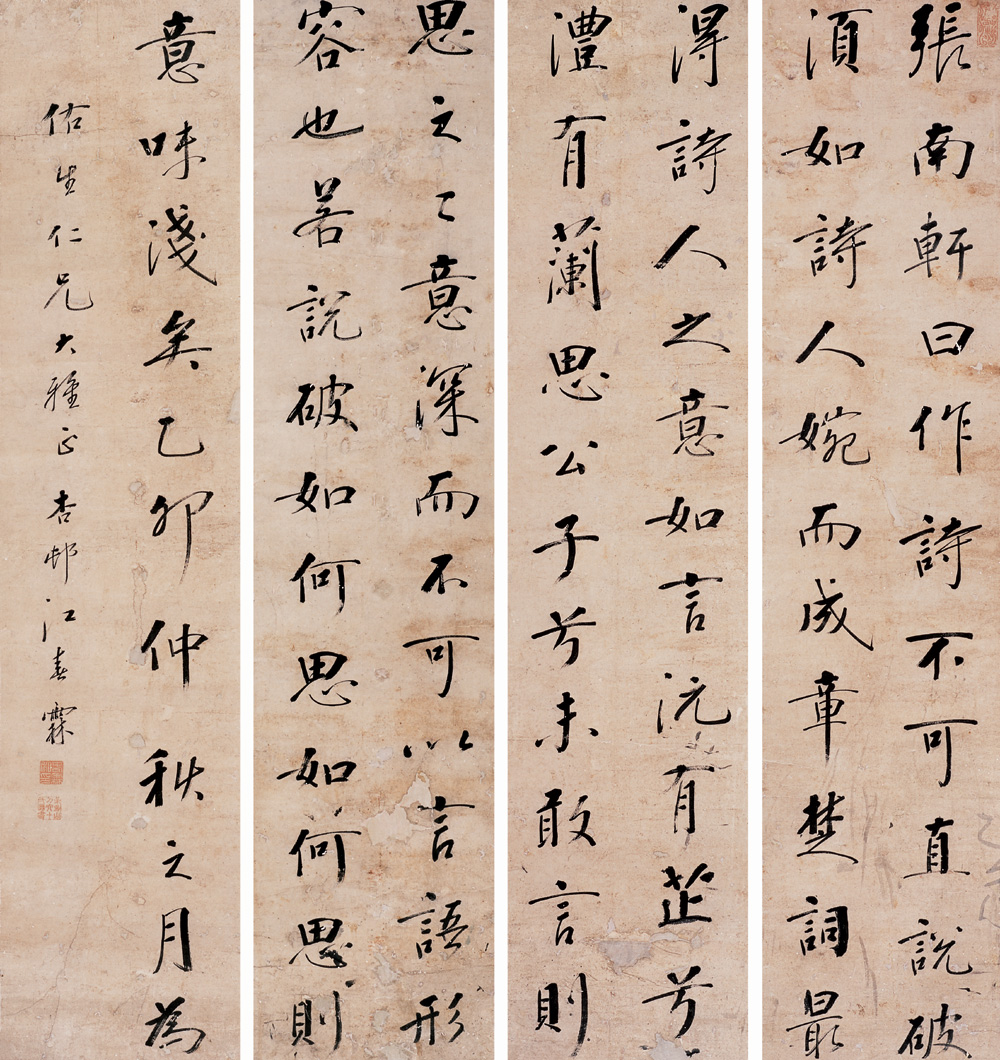 張南軒曰作詩不可直說破
須如詩人婉而成章楚詞最
得詩人之意如言沅有芷兮
澧有蘭思公子兮未敢言則
思之之意深而不可以言語形
容也若說破如何思如何思則
意味淺矣乙卯仲秋之月為
佑生仁兄大雅正杏邨江春霖